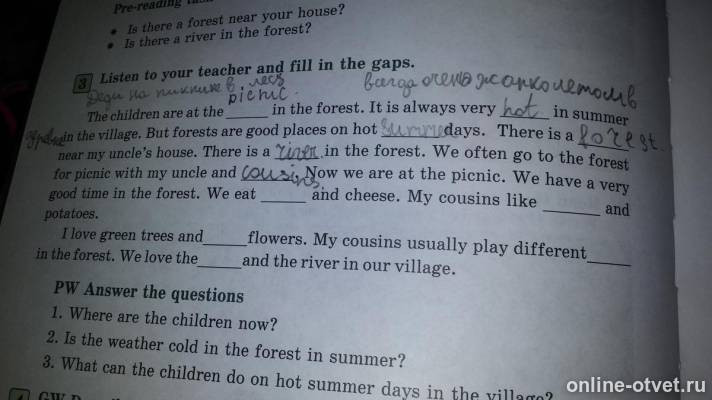 Pre-reading task
• Is there a forest near your house?
• Is there a river in the forest?
3 Listen to your teacher and fill in the gaps.
Дети на пикнике в лесу всегда очень жарко летом в
picnic
The children are at the _____ in the forest. It is always very hot in summer
in the village. But forests are good places on hot summer days. There is a forest
near my uncle's house. There is a river in the forest. We often go to the forest
for picnic with my uncle and cousins. Now we are at the picnic. We have a very
good time in the forest. We eat _____ and cheese. My cousins like _____ and
potatoes.
I love green trees and_____flowers. My cousins usually play different_____
in the forest. We love the_____and the river in our village.
PW Answer the questions
1. Where are the children now?
2. Is the weather cold in the forest in summer?
3. What can the children do on hot summer days in the village?
4 GW
online-otvet.ru